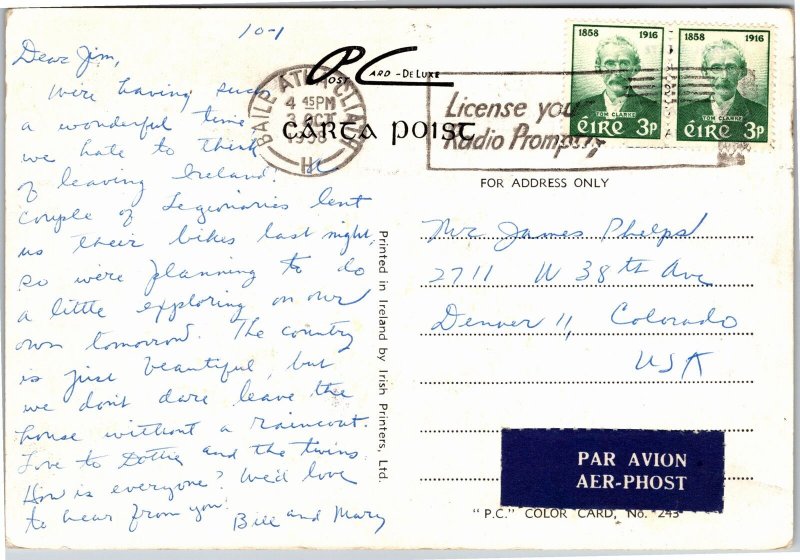 10-1
Dear Jim,
We're having such
a wonderful time
we hate to think
of leaving Ireland! A
couple of Legionaries lent
us their bikes last night,
so we're planning to do
a little exploring on our
own tomorrow. The country
is just beautiful, but
we don't dare leave the
house without a raincoat.
Love to Dottie and the twins.
How is everyone? We'd love
to hear from you.
Bill and Mary
Printed in Ireland by Irish Printers, Ltd.
POST CARD - DE LUXE
CARTA POIST
BAILE ATHA CLIATH
4 45PM
3 OCT
1958
H
License your
Radio Promptly
1858 1916
TOM CLARKE
ÉIRE 3p
1858 1916
TOM CLARKE
ÉIRE 3p
FOR ADDRESS ONLY
Mr. James Phelps
2711 W 38th Ave
Denver 11, Colorado
USA
PAR AVION
AER-PHOST
"P.C." COLOR CARD, No. 243